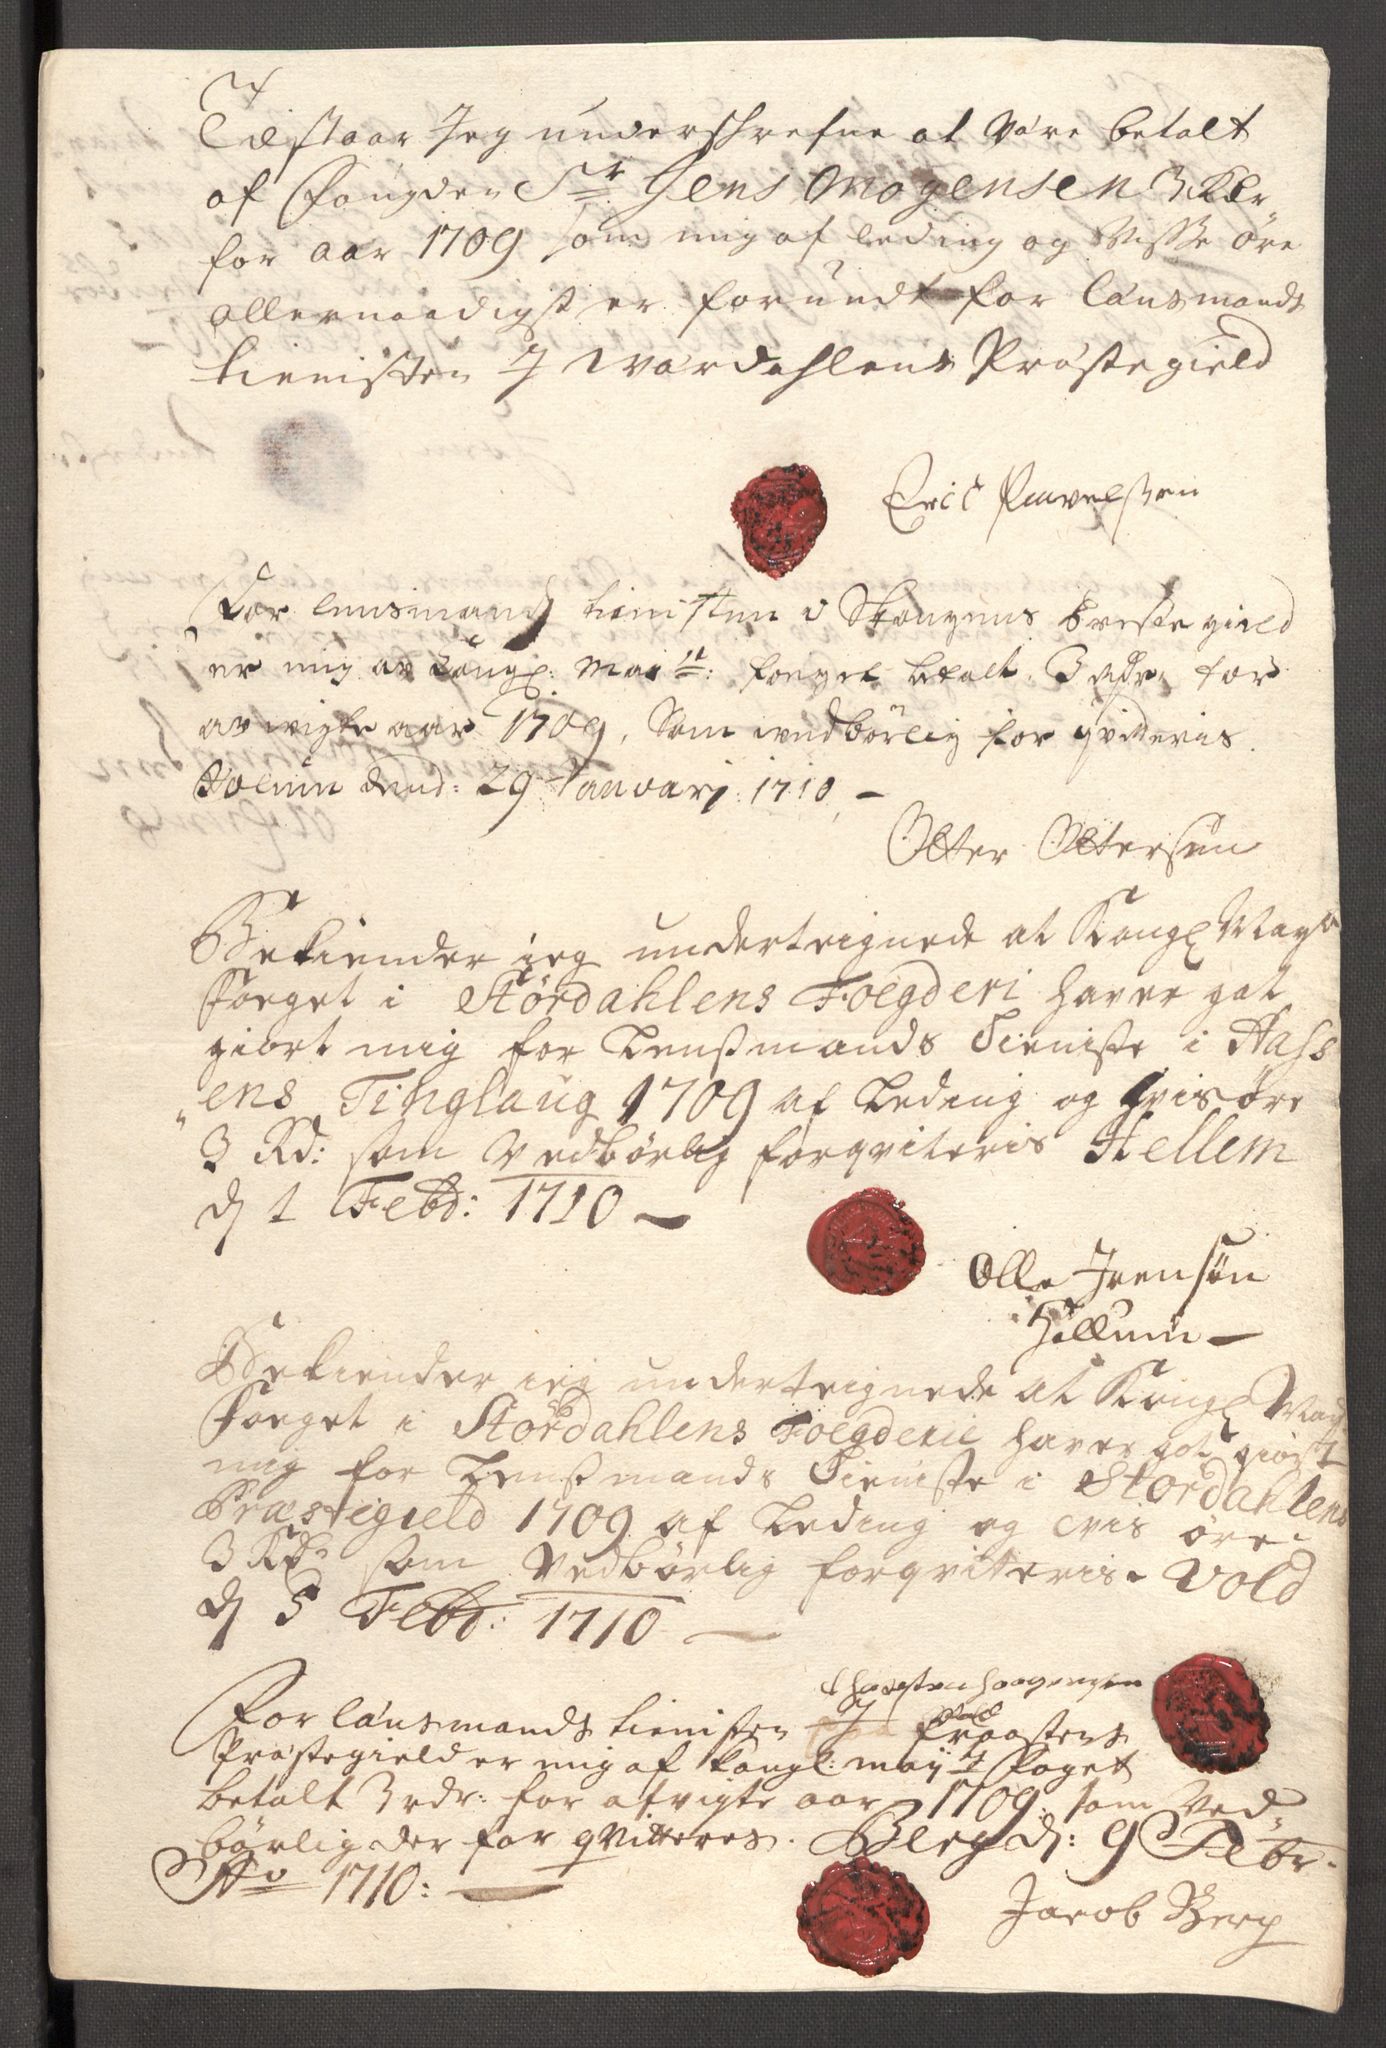 Tilstaar Jeg underschrefne at være betalt
af Fougden Sr Jens Mogensen 3 Rdr
for aar 1709 som mig af leding og Visse öre
allernaadigst er forundt for länsmands
tienisten J Wærdahlens Præstegield
Eric Pauelssen
For lensmand tienisten i Skongens Prestegield
er mig av Kongl: Mai tt: foeget betalt 3 rdr for
avvigte aar 1709, Som vedbörlig for qvitteris
Holum dend: 29 Januarj: 1710, –
Otter Ottersen
Bekiender jeg underteignede at Kongl May
Foeget i Størdahlens Foegderi haver got
giort mig for Lenssmands Tieniste i Aass
ens Tinglaug 1709 af Leding og Visøre
3 Rd: som Vedbørlig forqviteris Hellem
d 1 Febr: 1710 –
Olle Jrensøn
Hellum –
Bekiender ieg underteignede at Kongl May
Foeget i Størdahlens Foegderie haver got giort
mig for Lenssmands Tieniste i Størdahlens
Præstegield 1709 af Leding og Vis øre
3 Rdr som Vedbørlig forqviteris. Vold
d 5 Febr: 1710 –
Vold
For länsmands tienisten J Fraastens
Præstegield er mig af Kongl: May tt Foget
betalt 3 rdr: for afvigte aar 1709: som Ved
börlig der for qvitteres. Berg d: 9 Febr.
Ao 1710: –
Jacob Berg